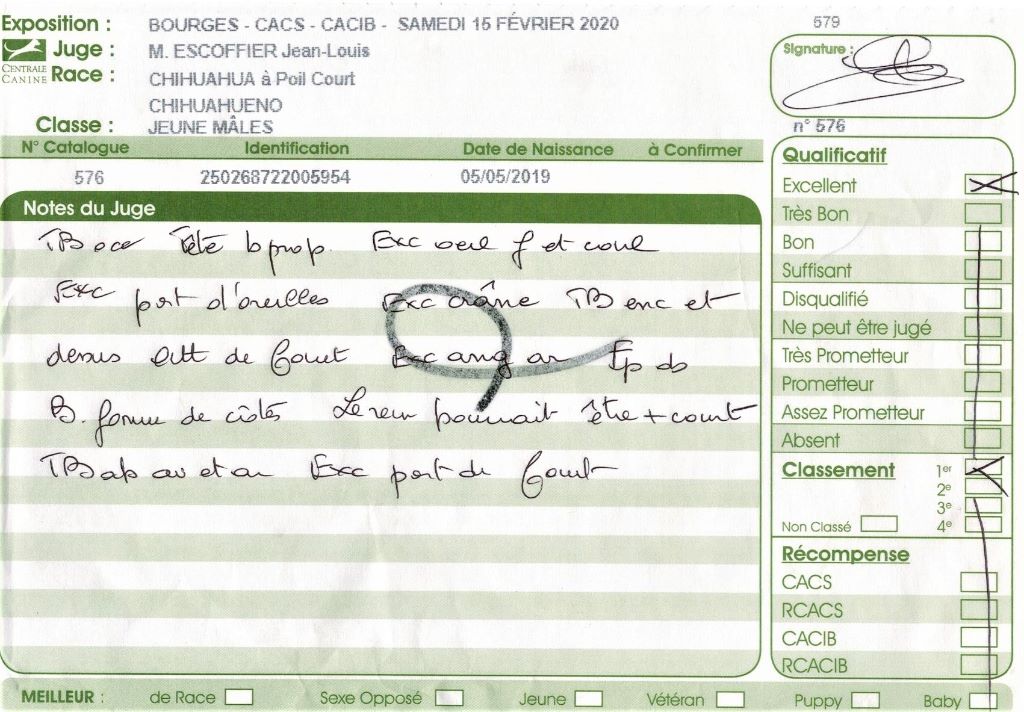 Exposition : BOURGES - CACS - CACIB - SAMEDI 15 FÉVRIER 2020
579
CENTRALE CANINE
Juge : M. ESCOFFIER Jean-Louis
Race : CHIHUAHUA à Poil Court
CHIHUAHUENO
Classe : JEUNE MÂLES
Signature :
n° 576
N° Catalogue Identification Date de Naissance à Confirmer
576 250268722005954 05/05/2019
Notes du Juge
TB Tête b prop. Exc oeil f et coul
Exc port d'oreilles Exc crâne TB enc et
dessus att de fouet Exc ang ar Ep ds
B. forme de côtés Le rein pourrait être + court
TB ab av et ar Exc port de fouet
Qualificatif
Excellent
Très Bon
Bon
Suffisant
Disqualifié
Ne peut être jugé
Très Prometteur
Prometteur
Assez Prometteur
Absent
Classement 1er
2e
3e
Non Classé 4e
Récompense
CACS
RCACS
CACIB
RCACIB
MEILLEUR : de Race Sexe Opposé Jeune Vétéran Puppy Baby